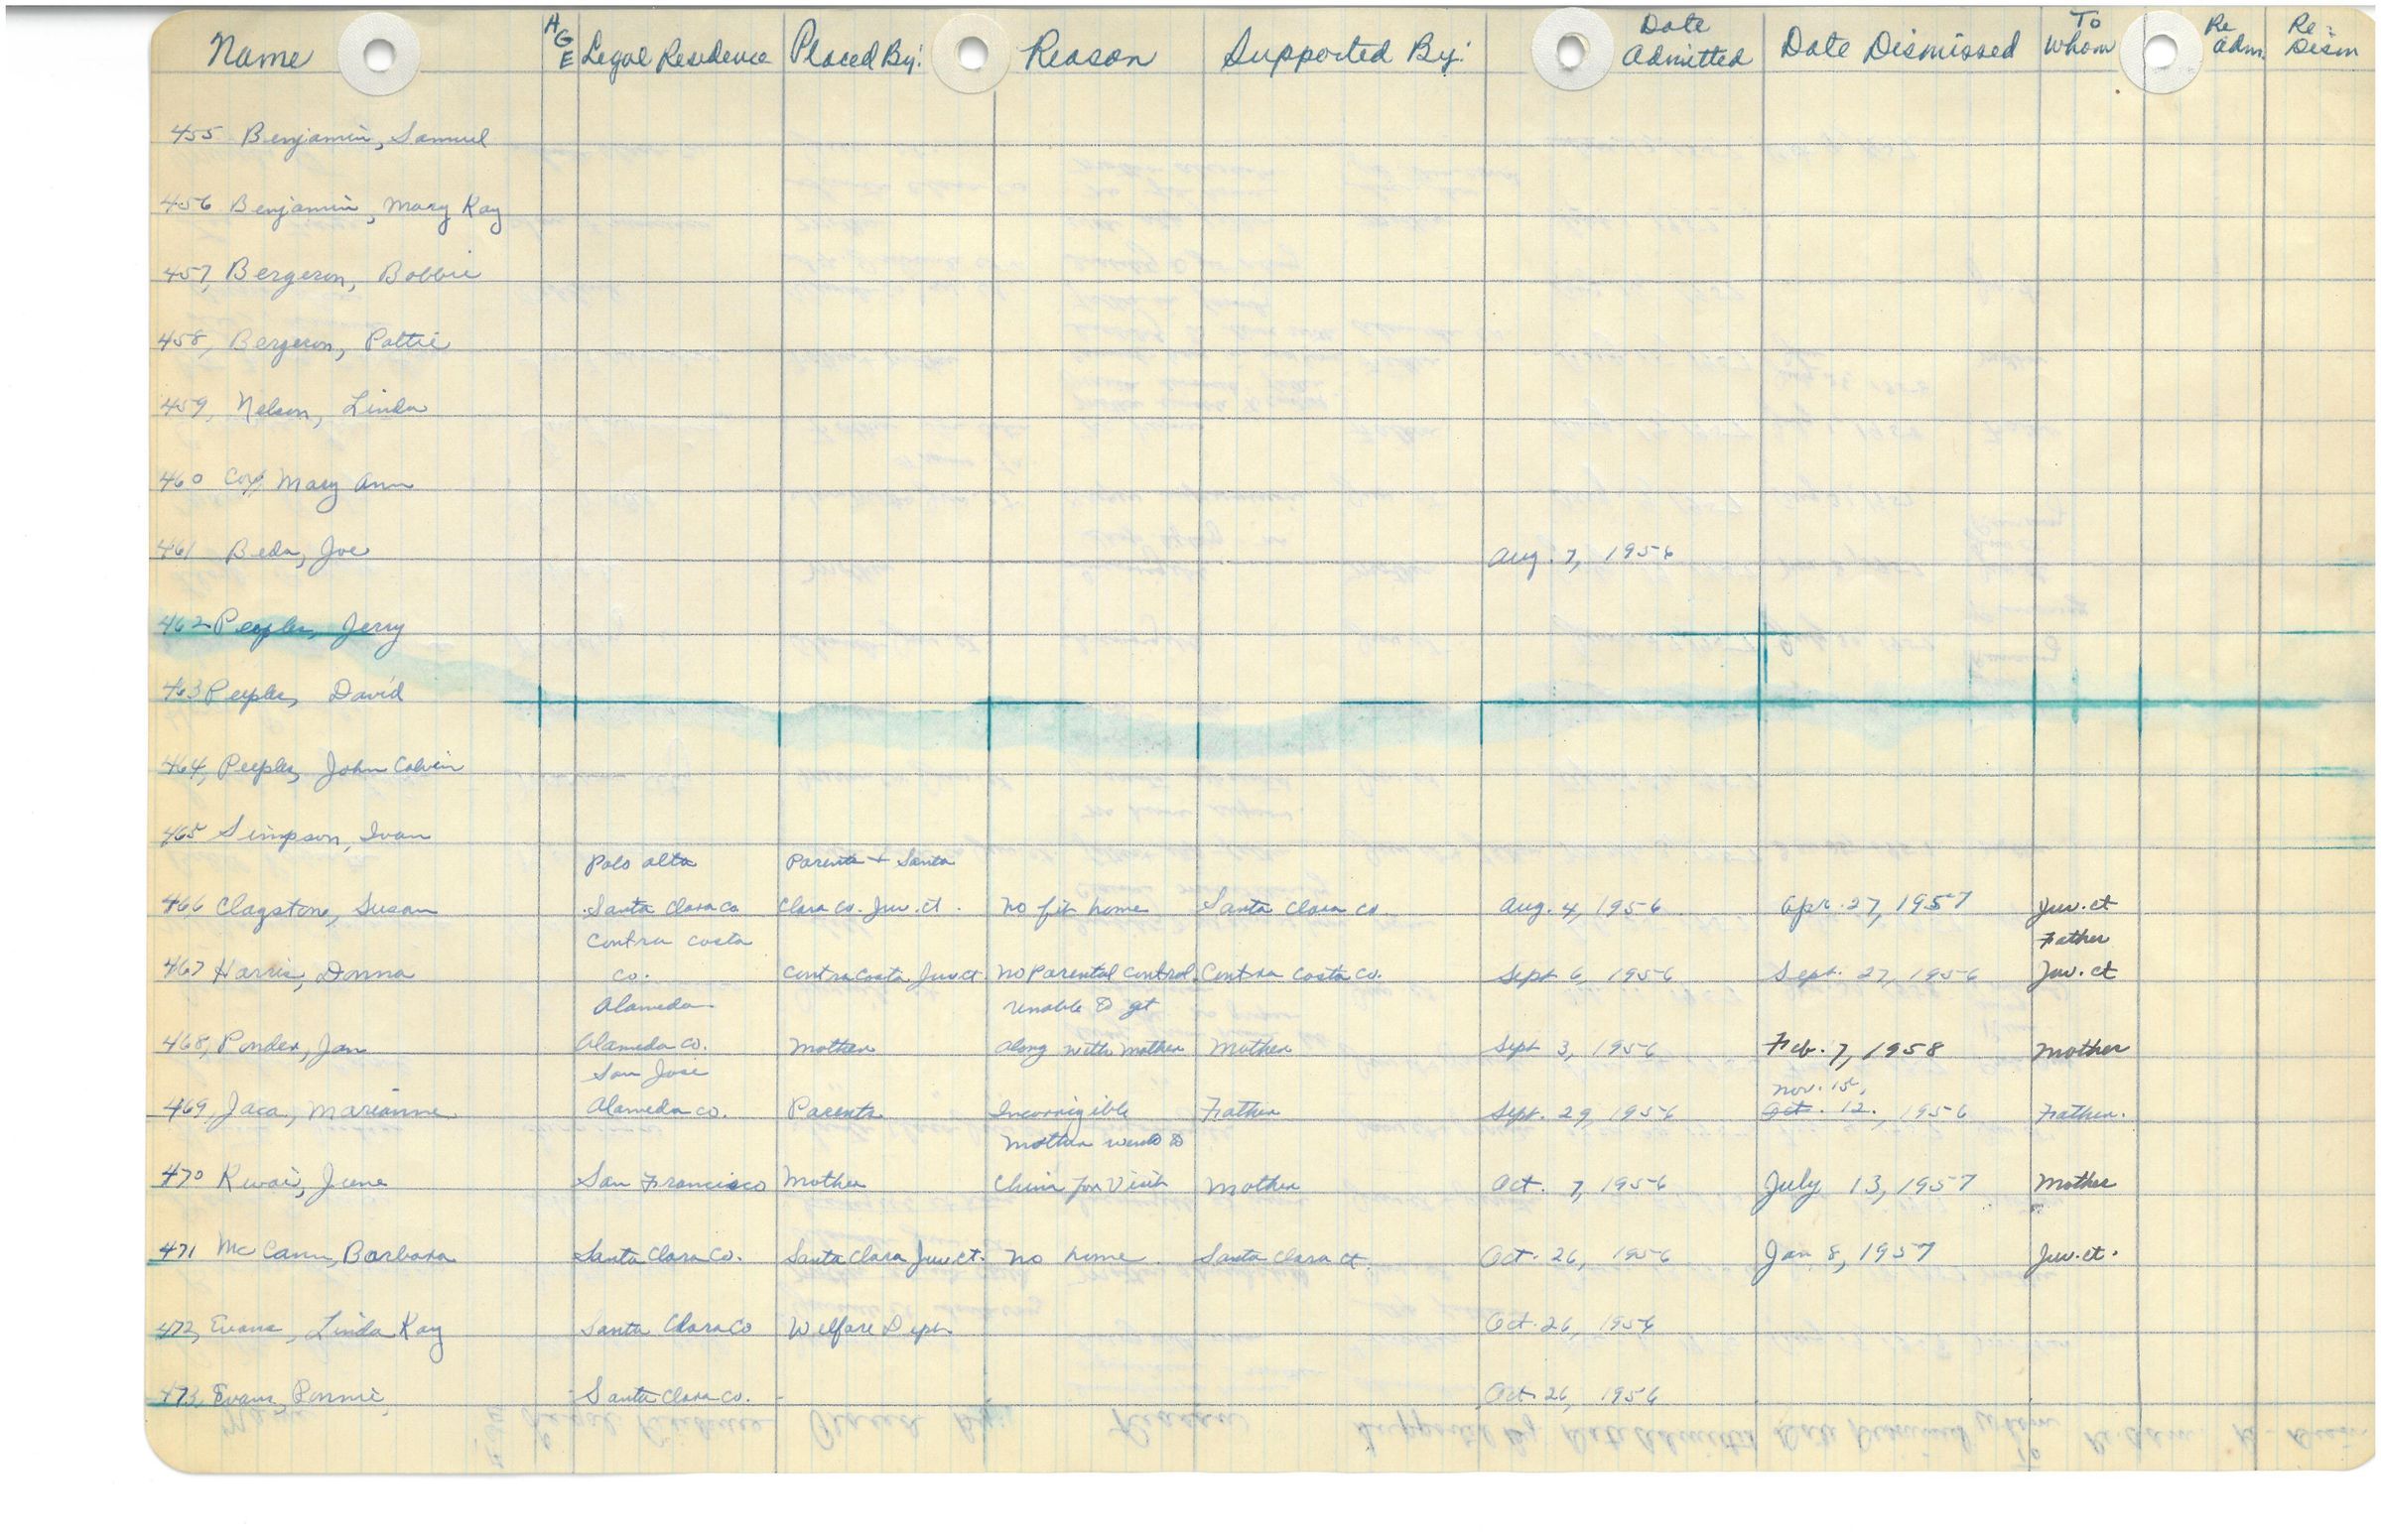 Name AGE Legal Residence Placed By: Reason Supported By: Date Admitted Date Dismissed To Whom Re Adm. Re-Dism
455 Benjamin, Samuel
456 Benjamin, Mary Kay
457, Bergeron, Bobbie
458, Bergeron, Pattie
459, Nelson, Linda
460 Cox, Mary Ann
461 Beda, Joe Aug. 7, 1956
462 Peoples, Jerry
463 Peeples, David
464, Peeples, John Calvin
465 Simpson, Ivan
Palo Alta Parents + Santa
466 Clagstone, Susan Santa Clara Co. Clara Co. Juv. Ct. No fit home Santa Clara Co. Aug. 4, 1956 Apr. 27, 1957 Juv. ct
Contra Costa Father
467 Harris, Donna Co. Contra Costa Juv. ct. No Parental Control Contra Costa Co. Sept 6, 1956 Sept. 27, 1956 Juv. ct
Alameda Unable to get
468, Ponder, Jan Alameda Co. Mother along with mother Mother Sept 3, 1956 Feb. 7, 1958 Mother
San Jose Nov. 15,
469, Jaca, Marianne Alameda Co. Parents Incorrigible Father Sept. 29, 1956 Oct. 12, 1956 Father.
Mother went to
470 Kwai, June San Francisco Mother China for Visit Mother Oct. 7, 1956 July 13, 1957 Mother
471 McCann, Barbara Santa Clara Co. Santa Clara Juv. ct. No home Santa Clara ct. Oct. 26, 1956 Jan 8, 1957 Juv. ct.
472, Evans, Linda Kay Santa Clara Co Welfare Dept Oct. 26, 1956
473, Evans, Santa Clara Co. Oct 26, 1956